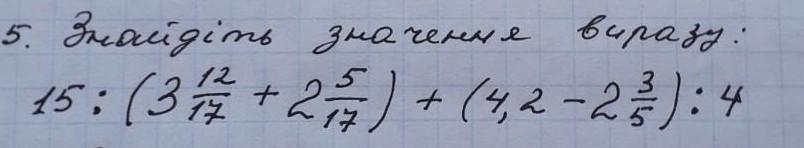 5. Знайдіть значення виразу:
15 : (3 12/17 + 2 5/17) + (4,2 - 2 3/5) : 4